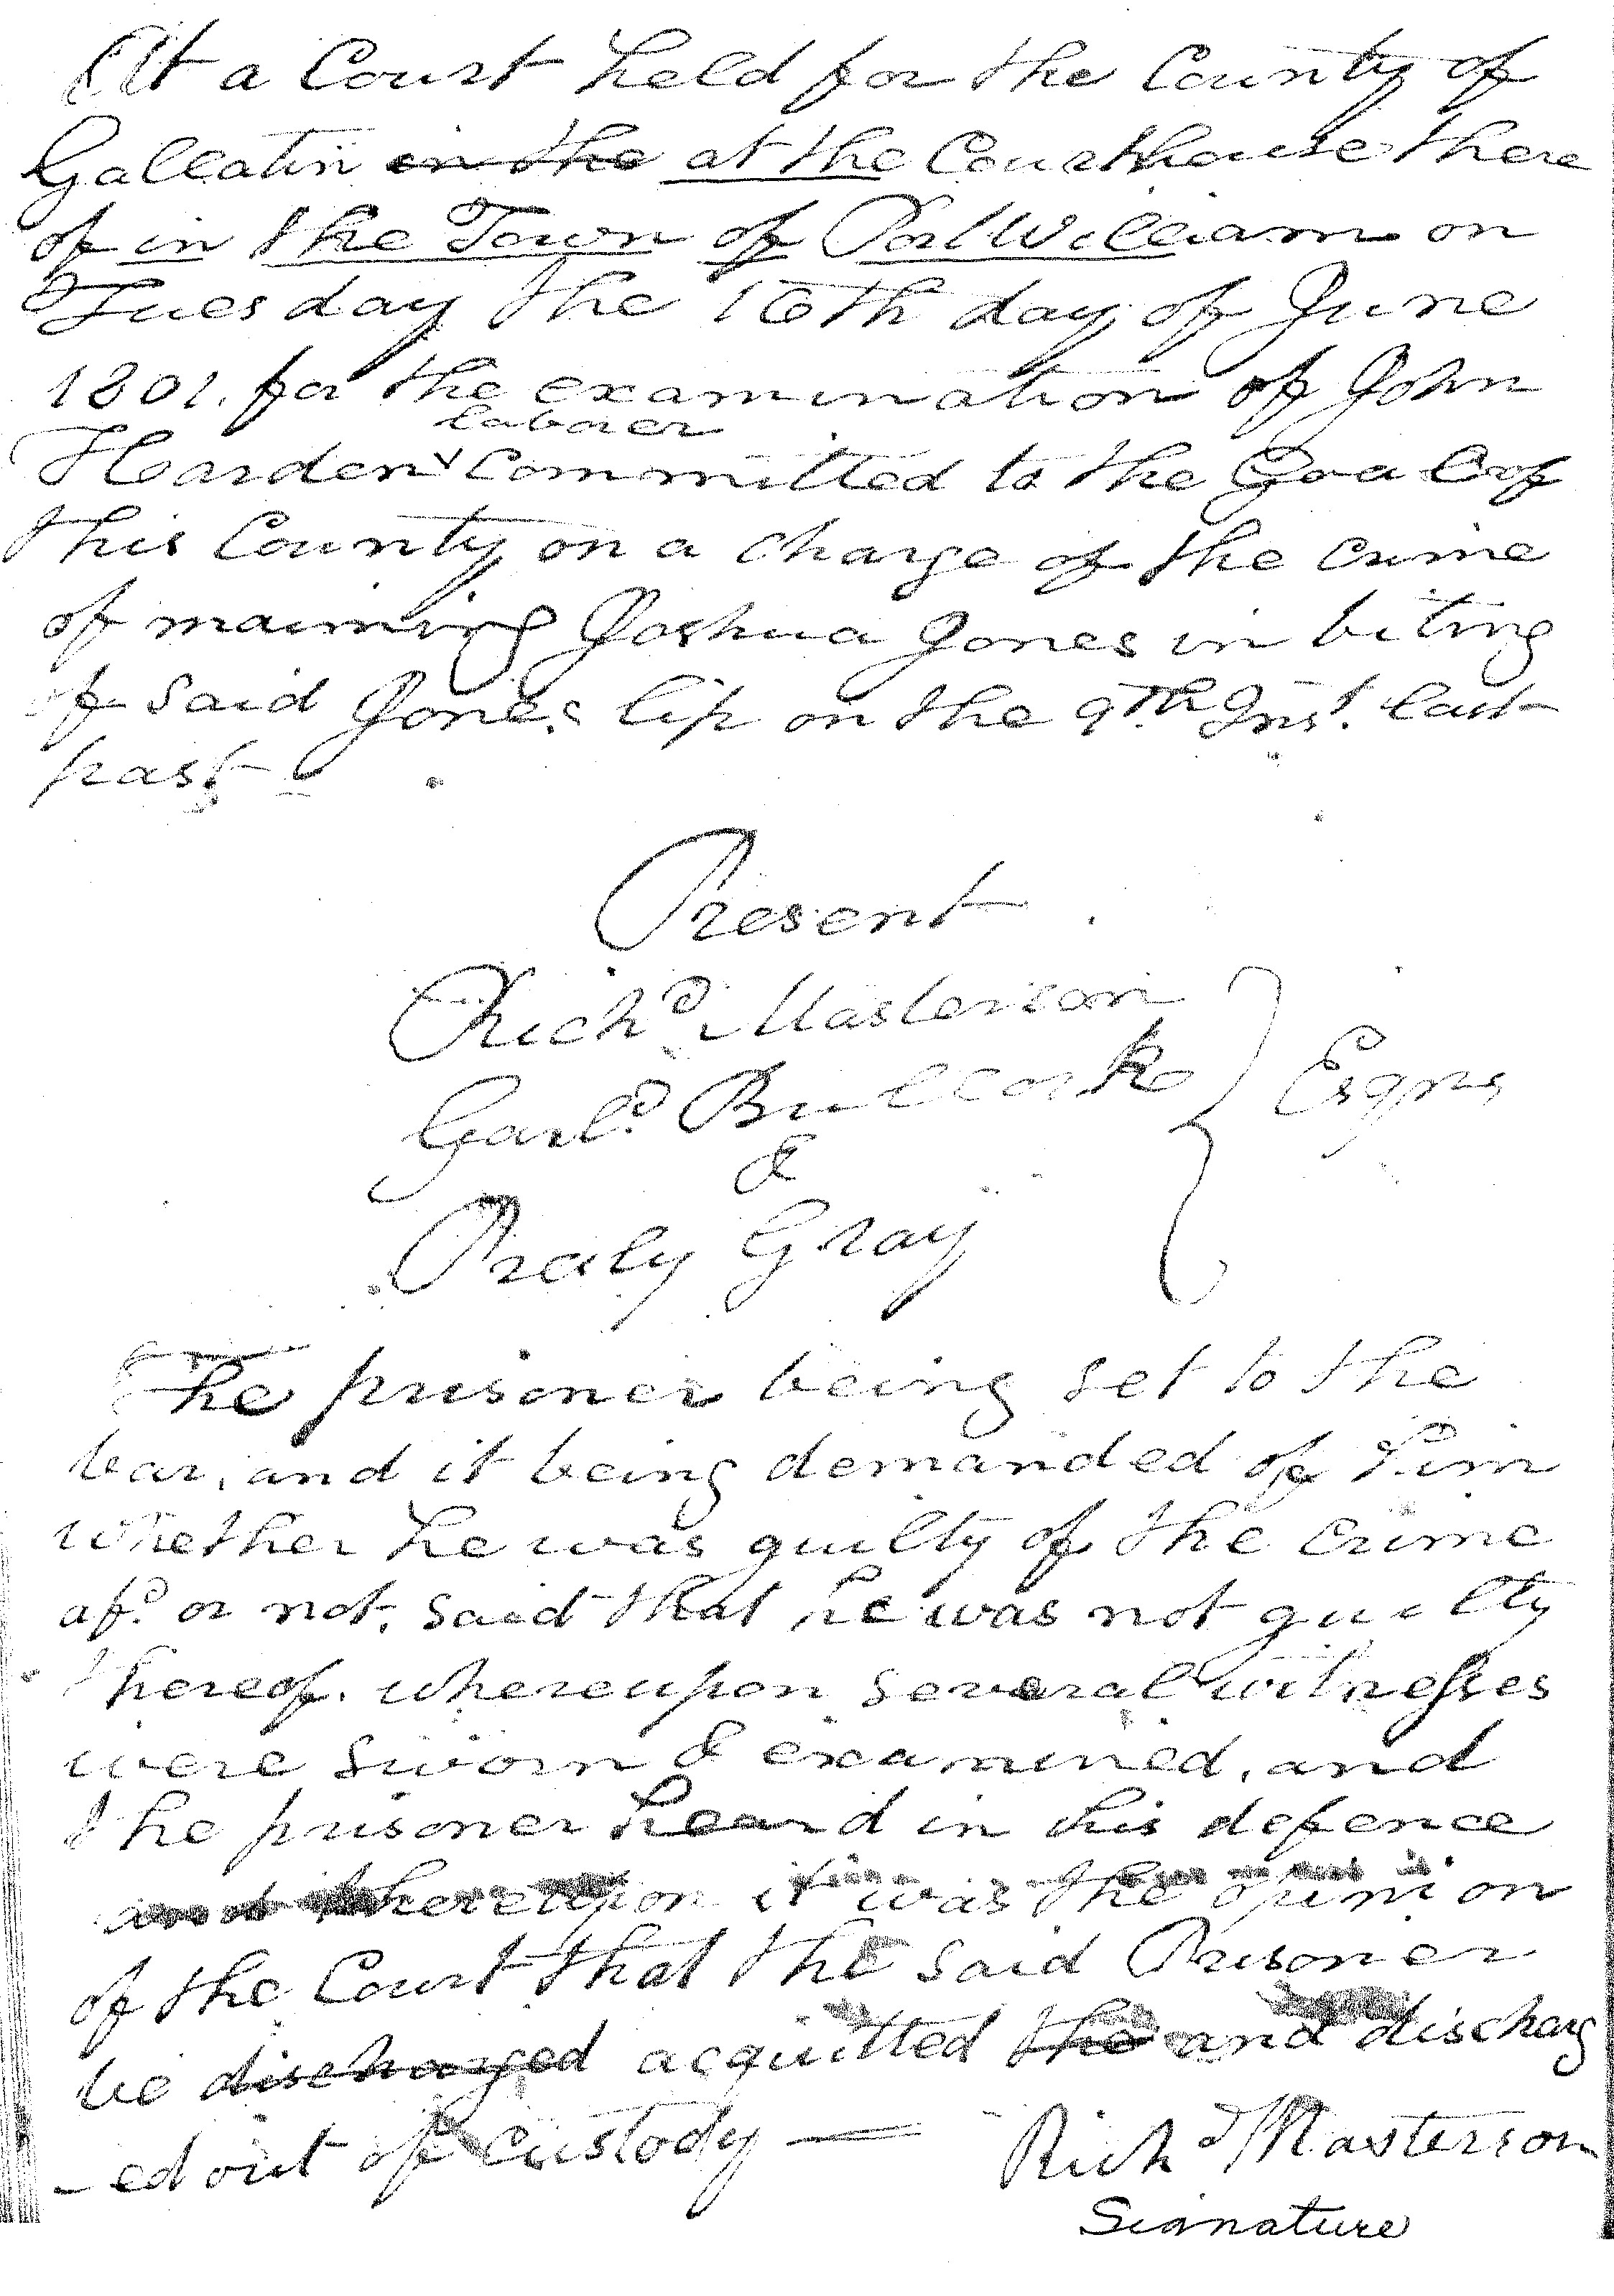 At a Court held for the County of
Gallatin in the at the Courthouse there
of in the Town of Port William on
Tuesday the 16th day of June
1801. for the examination of John
laborer
Harden Committed to the Goal of
this County on a charge of the crime
of maiming Joshua Jones in biting
of said Jones lip on the 9th Inst. last
past
Present
Richd Masterson
Garld. Bullock Esqrs
&
Presly Gray
The prisoner being set to the
bar, and it being demanded of him
whether he was guilty of the crime
afd. or not, said that he was not guilty
thereof. whereupon several witnesses
were sworn & examined, and
the prisoner heard in his defence
and thereupon it was the opinion
of the Court that the said Prisoner
be discharged acquitted the and discharg
-ed out of custody —
Richd Masterson
Signature